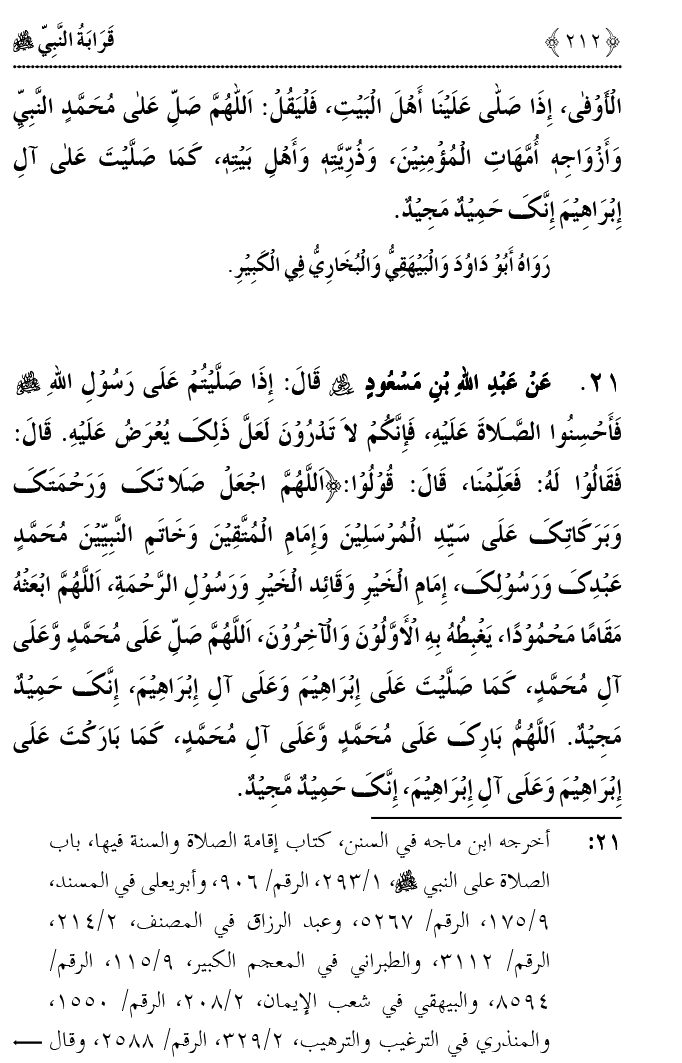 ﴿٢١٢﴾ قَرَابَةُ النَّبِيِّ ﷺ
الْأَوْفٰی، إِذَا صَلّٰی عَلَیْنَا أَهْلَ الْبَیْتِ، فَلْیَقُلْ: اَللّٰهُمَّ صَلِّ عَلٰی مُحَمَّدٍ النَّبِيِّ
وَأَزْوَاجِهٖ أُمَّهَاتِ الْمُؤْمِنِیْنَ، وَذُرِّیَّتِهٖ وَأَهْلِ بَیْتِهٖ، کَمَا صَلَّیْتَ عَلٰی آلِ
إِبْرَاهِیْمَ إِنَّکَ حَمِیْدٌ مَجِیْدٌ.
رَوَاهُ أَبُوْ دَاوُدَ وَالْبَیْهَقِيُّ وَالْبُخَارِيُّ فِي الْکَبِیْرِ.
٢١. عَنْ عَبْدِ اللهِ بْنِ مَسْعُودٍ ﷺ قَالَ: إِذَا صَلَّیْتُمْ عَلَی رَسُوْلِ اللهِ ﷺ
فَأَحْسِنُوا الصَّلَاةَ عَلَیْهِ، فَإِنَّکُمْ لاَ تَدْرُوْنَ لَعَلَّ ذَلِکَ یُعْرَضُ عَلَیْهِ. قَالَ:
فَقَالُوْا لَهُ: فَعَلِّمْنَا، قَالَ: قُوْلُوْا:﴿اَللَّهُمَّ اجْعَلْ صَلَاتَکَ وَرَحْمَتَکَ
وَبَرَکَاتِکَ عَلَی سَیِّدِ الْمُرْسَلِیْنَ وَإِمَامِ الْمُتَّقِیْنَ وَخَاتَمِ النَّبِیِّیْنَ مُحَمَّدٍ
عَبْدِکَ وَرَسُوْلِکَ، إِمَامِ الْخَیْرِ وَقَائِد الْخَیْرِ وَرَسُوْلِ الرَّحْمَةِ، اَللَّهُمَّ ابْعَثْهُ
مَقَامًا مَحْمُوْدًا، یَغْبِطُهُ بِهِ الْأَوَّلُوْنَ وَالْآخِرُوْنَ، اَللَّهُمَّ صَلِّ عَلَی مُحَمَّدٍ وَّعَلَی
آلِ مُحَمَّدٍ، کَمَا صَلَّیْتَ عَلَی إِبْرَاهِیْمَ وَعَلَی آلِ إِبْرَاهِیْمَ، إِنَّکَ حَمِیْدٌ
مَجِیْدٌ. اَللَّهُمُّ بَارِکَ عَلَی مُحَمَّدٍ وَّعَلَی آلِ مُحَمَّدٍ، کَمَا بَارَکْتَ عَلَی
إِبْرَاهِیْمَ وَعَلَی آلِ إِبْرَاهِیْمَ، إِنَّکَ حَمِیْدٌ مَّجِیْدٌ.
٢١: أخرجه ابن ماجه في السنن، کتاب إقامة الصلاة والسنة فیها، باب
الصلاة علی النبي ﷺ، ١/٢٩٣، الرقم/ ٩٠٦، وأبویعلی في المسند،
٩/١٧٥، الرقم/ ٥٢٦٧، وعبد الرزاق في المصنف، ٢/٢١٤،
الرقم/ ٣١١٢، والطبراني في المعجم الکبیر، ٩/١١٥، الرقم/
٨٥٩٤، والبیهقي في شعب الإیمان، ٢/٢٠٨، الرقم/ ١٥٥٠،
والمنذري في الترغیب والترهیب، ٢/٣٢٩، الرقم/ ٢٥٨٨، وقال